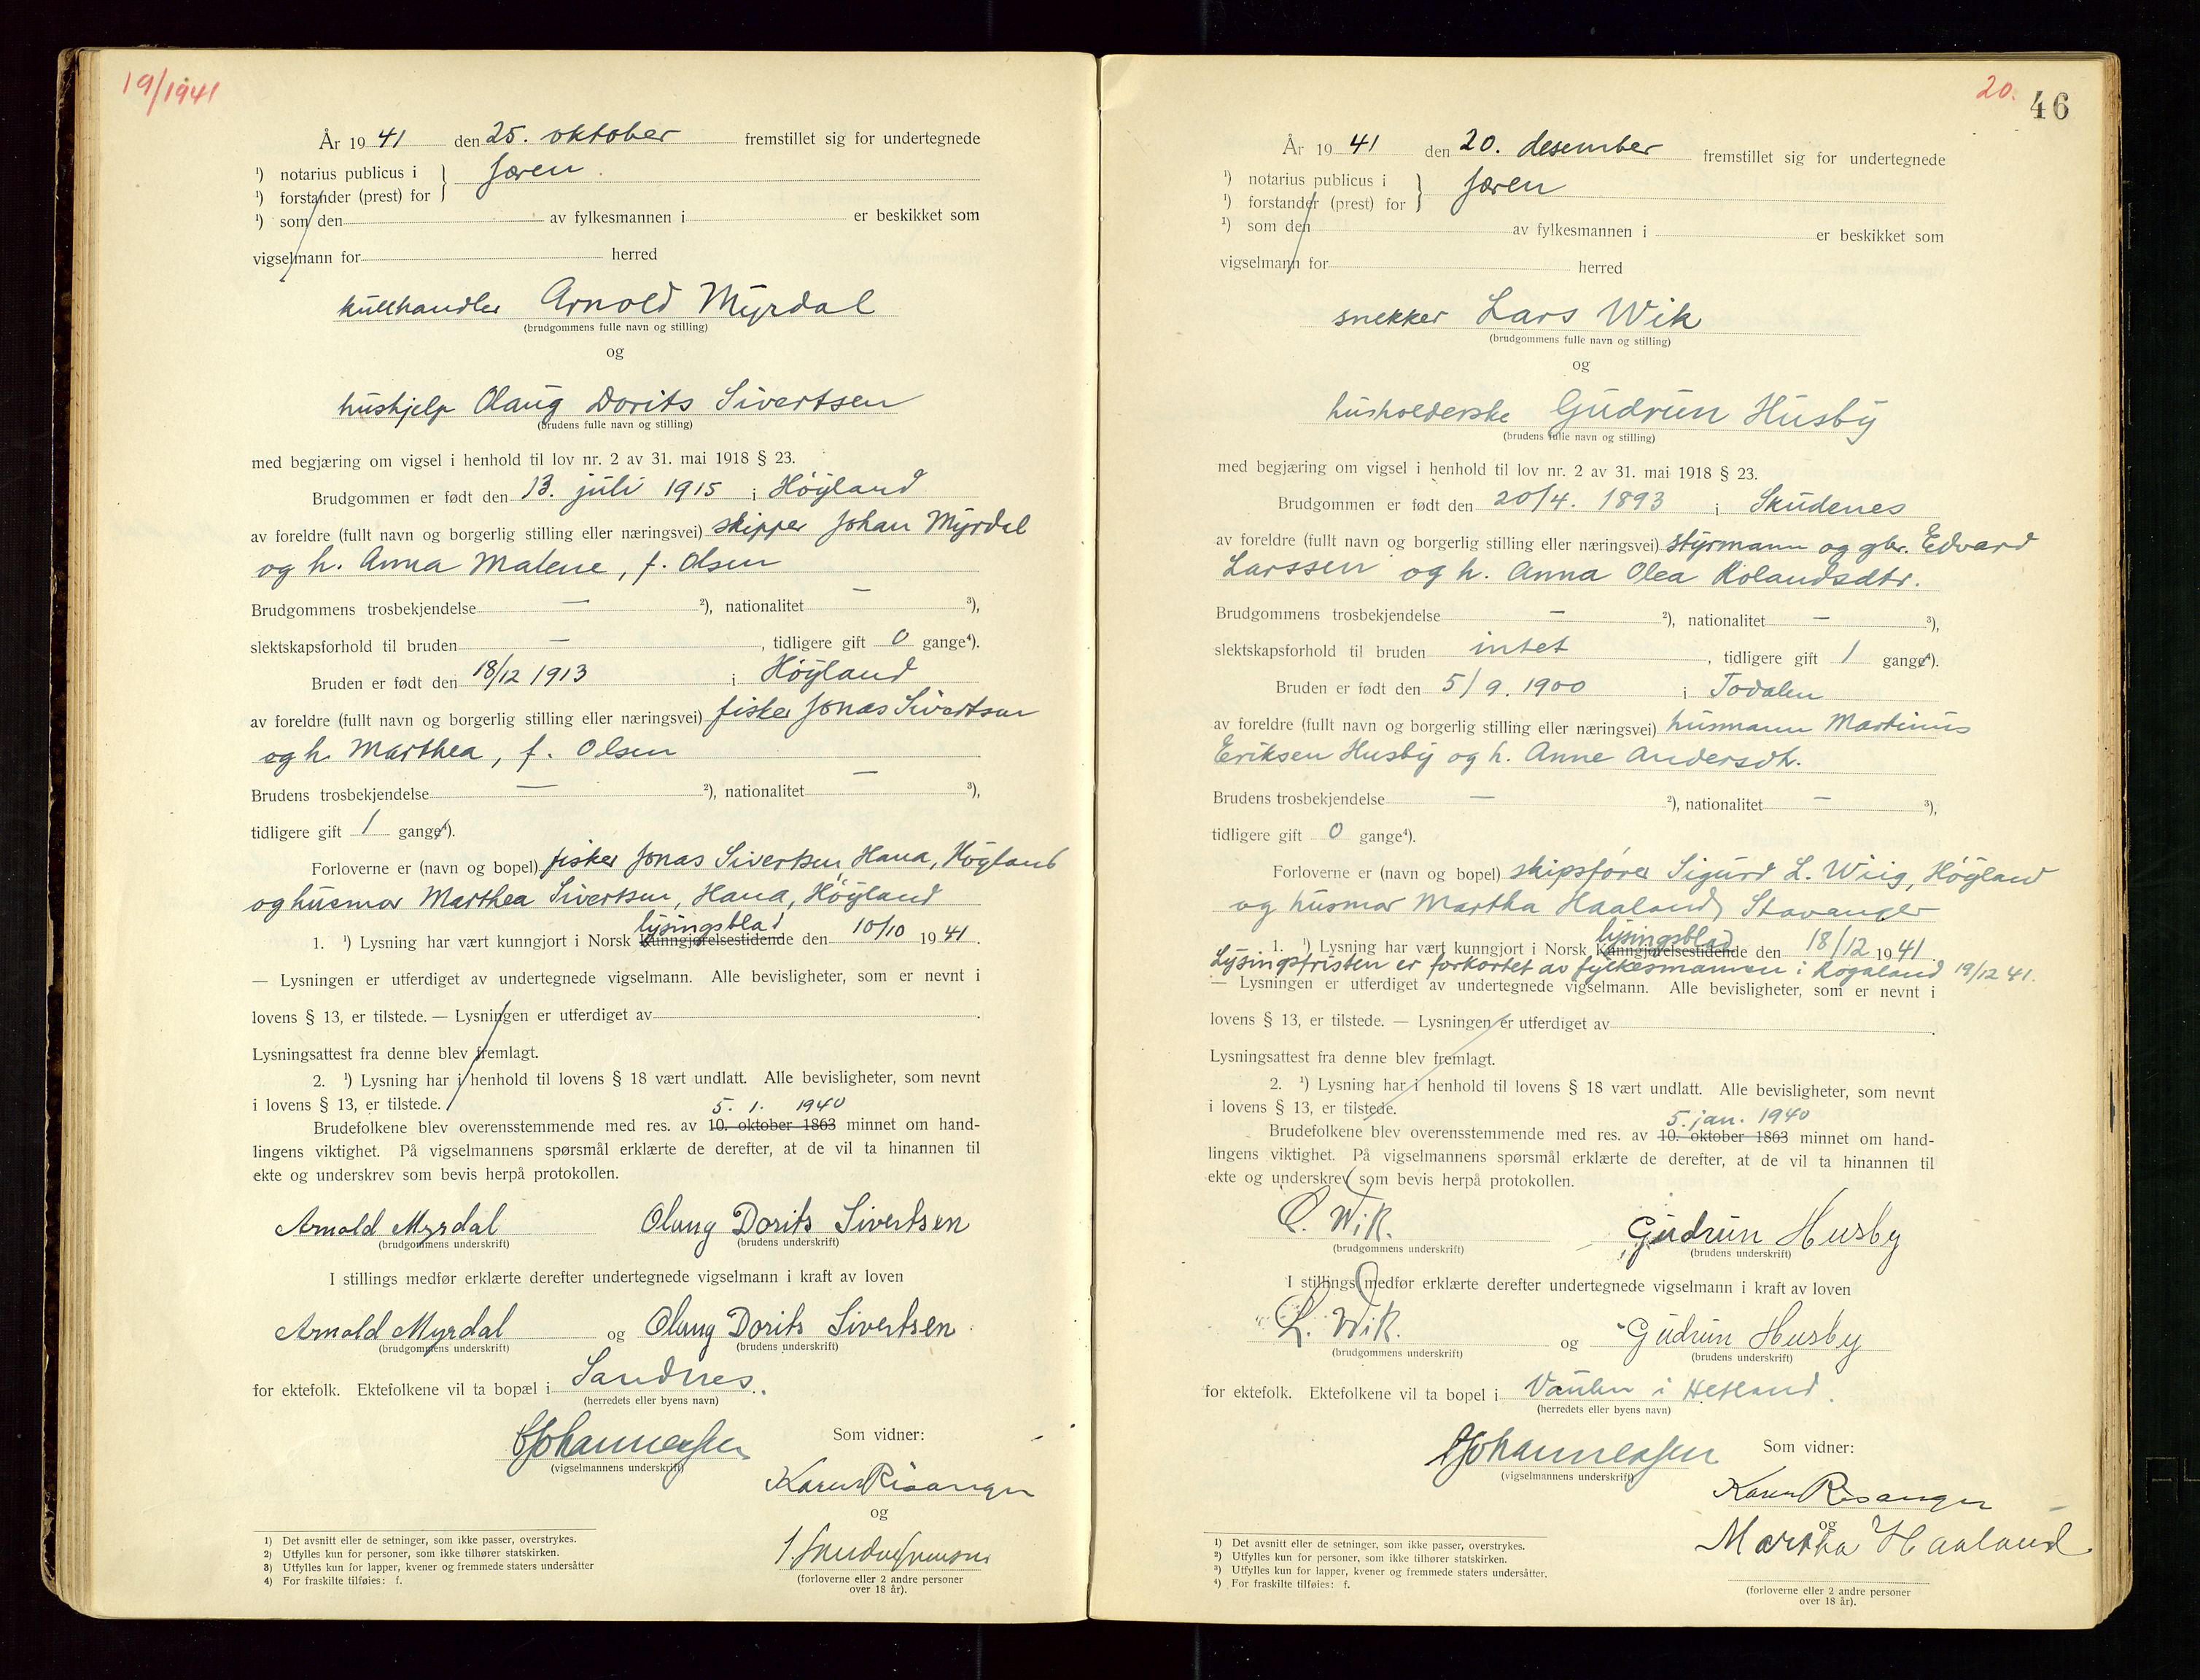 19/1941
År 1941 den 25. oktober fremstillet sig for undertegnede
¹) notarius publicus i } Jæren.
¹) forstander (prest) for
¹) som den av fylkesmannen i er beskikket som
vigselmann for herred
kullhandler Arnold Myrdal
(brudgommens fulle navn og stilling)
og
hushjelp Olaug Dorits Sivertsen
(brudens fulle navn og stilling)
med begjæring om vigsel i henhold til lov nr. 2 av 31. mai 1918 § 23.
Brudgommen er født den 13. juli 1915 i Høyland
av foreldre (fullt navn og borgerlig stilling eller næringsvei) skipper Johan Myrdal
og h. Anna Malene, f. Olsen
Brudgommens trosbekjendelse — ²), nationalitet — ³),
slektskapsforhold til bruden —, tidligere gift 0 gange⁴).
Bruden er født den 18/12 1913 i Høyland
av foreldre (fullt navn og borgerlig stilling eller næringsvei) fisker Jonas Sivertsen
og h. Marthea, f. Olsen
Brudens trosbekjendelse — ²), nationalitet — ³),
tidligere gift 1 gange⁴).
Forloverne er (navn og bopel) fisker Jonas Sivertsen, Hana, Høyland
og husmor Marthea Sivertsen, Hana, Høyland
lysingsblad
1. ¹) Lysning har vært kunngjort i Norsk Kunngjørelsestidende den 10/10 1941.
— Lysningen er utferdiget av undertegnede vigselmann. Alle bevisligheter, som er nevnt i
lovens § 13, er tilstede. — Lysningen er utferdiget av
Lysningsattest fra denne blev fremlagt.
2. ¹) Lysning har i henhold til lovens § 18 vært undlatt. Alle bevisligheter, som nevnt
i lovens § 13, er tilstede.
5. 1. 1940
Brudefolkene blev overensstemmende med res. av 10. oktober 1863 minnet om hand-
lingens viktighet. På vigselmannens spørsmål erklærte de derefter, at de vil ta hinannen til
ekte og underskrev som bevis herpå protokollen.
Arnold Myrdal Olaug Dorits Sivertsen
(brudgommens underskrift) (brudens underskrift)
I stillings medfør erklærte derefter undertegnede vigselmann i kraft av loven
Arnold Myrdal og Olaug Dorits Sivertsen
(brudgommens underskrift) (brudens underskrift)
for ektefolk. Ektefolkene vil ta bopæl i Sandnes.
(herredets eller byens navn)
Johannessen
(vigselmannens underskrift)
Som vidner:
Karen Risanger
og
(forloverne eller 2 andre personer
over 18 år).
1) Det avsnitt eller de setninger, som ikke passer, overstrykes.
2) Utfylles kun for personer, som ikke tilhører statskirken.
3) Utfylles kun for lapper, kvener og fremmede staters undersåtter
4) For fraskilte tilføies: f.
20. 46
År 1941 den 20. desember fremstillet sig for undertegnede
¹) notarius publicus i } Jæren
¹) forstander (prest) for
¹) som den av fylkesmannen i er beskikket som
vigselmann for herred
snekker Lars Wik
(brudgommens fulle navn og stilling)
og
husholderske Gudrun Husby
(brudens fulle navn og stilling)
med begjæring om vigsel i henhold til lov nr. 2 av 31. mai 1918 § 23.
Brudgommen er født den 20/4. 1893 i Skudenes
av foreldre (fullt navn og borgerlig stilling eller næringsvei) styrmann og gbr. Edvard
Larssen og h. Anna Olea Rolandsdtr.
Brudgommens trosbekjendelse — ²), nationalitet — ³),
slektskapsforhold til bruden intet, tidligere gift 1 gange⁴).
Bruden er født den 5/9. 1900 i Todalen
av foreldre (fullt navn og borgerlig stilling eller næringsvei) husmann Martinus
Eriksen Husby og h. Anne Andersdtr.
Brudens trosbekjendelse — ²), nationalitet — ³),
tidligere gift 0 gange⁴).
Forloverne er (navn og bopel) skipsfører Sigurd L. Wiig, Høyland
og husmor Martha Haaland, Stavanger
lysingsblad
1. ¹) Lysning har vært kunngjort i Norsk Kunngjørelsestidende den 18/12 1941.
Lysingsfristen er forkortet av fylkesmannen i Rogaland 19/12 41.
— Lysningen er utferdiget av undertegnede vigselmann. Alle bevisligheter, som er nevnt i
lovens § 13, er tilstede. — Lysningen er utferdiget av
Lysningsattest fra denne blev fremlagt.
2. ¹) Lysning har i henhold til lovens § 18 vært undlatt. Alle bevisligheter, som nevnt
i lovens § 13, er tilstede.
5. jan. 1940
Brudefolkene blev overensstemmende med res. av 10. oktober 1863 minnet om hand-
lingens viktighet. På vigselmannens spørsmål erklærte de derefter, at de vil ta hinannen til
ekte og underskrev som bevis herpå protokollen.
L. Wik. Gudrun Husby
(brudgommens underskrift) (brudens underskrift)
I stillings medfør erklærte derefter undertegnede vigselmann i kraft av loven
L. Wik. og Gudrun Husby
(brudgommens underskrift) (brudens underskrift)
for ektefolk. Ektefolkene vil ta bopel i Vaulen i Hetland.
(herredets eller byens navn)
Johannessen
(vigselmannens underskrift)
Som vidner:
Karen Risanger
og
Martha Haaland
(forloverne eller 2 andre personer
over 18 år).
1) Det avsnitt eller de setninger, som ikke passer, overstrykes.
2) Utfylles kun for personer, som ikke tilhører statskirken.
3) Utfylles kun for lapper, kvener og fremmede staters undersåtter.
4) For fraskilte tilføies: f.